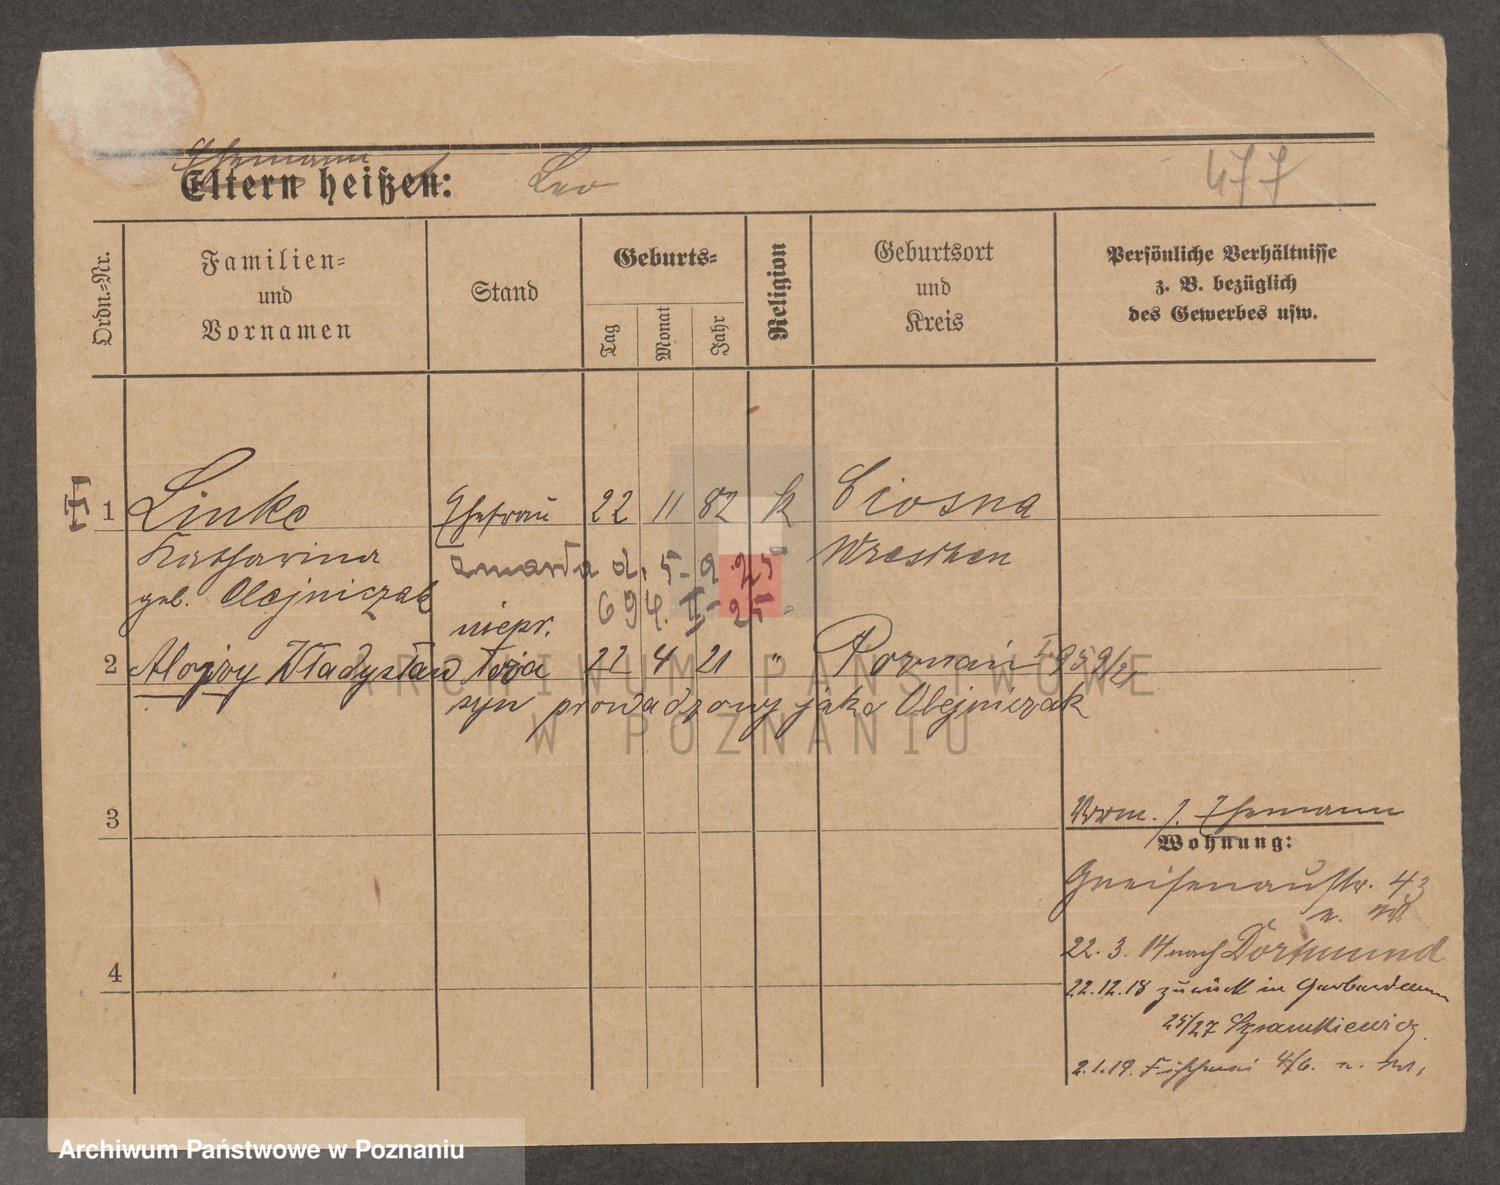 Ehemann
Eltern heißen: Leo
477
Ordn.-Nr.
Familien-
und
Vornamen
Stand
Geburts-
Tag
Monat
Jahr
Religion
Geburtsort
und
Kreis
Persönliche Verhältnisse
z. B. bezüglich
des Gewerbes usw.
1 Linke Ehefrau 22 11 82 k Ciosna
Katharina Wreschen
zmarła d. 5-2.25
geb. Olejniczak
694. II-25
niepr.
2 Alojzy Władysław 22 4 21 " Poznań I 959/21
syn prowadzony jako Olejniczak
ARCHIWUM PAŃSTWOWE
W POZNANIU
3
Ehemann
Wohnung:
Gneisenaustr. 43
22.3.14 nach Dortmund
4
22.12.18 zurück in
25/27
2.1.19. Fischerei 4/6.
Archiwum Państwowe w Poznaniu